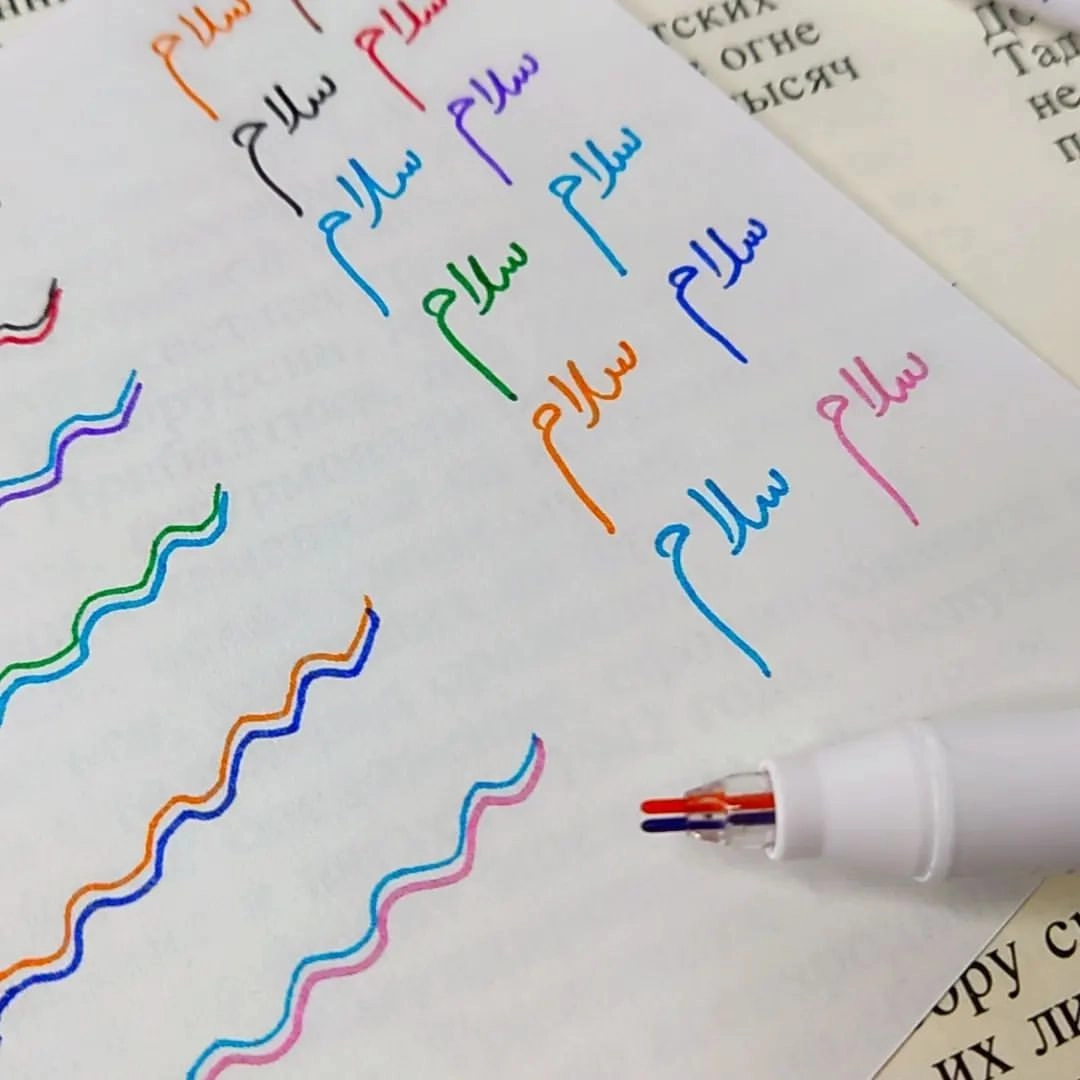 سلام
سلام
سلام
سلام
سلام
سلام
سلام
سلام
سلام
سلام
سلام
тских
огне
тысяч
Тад
не
ору
их ли